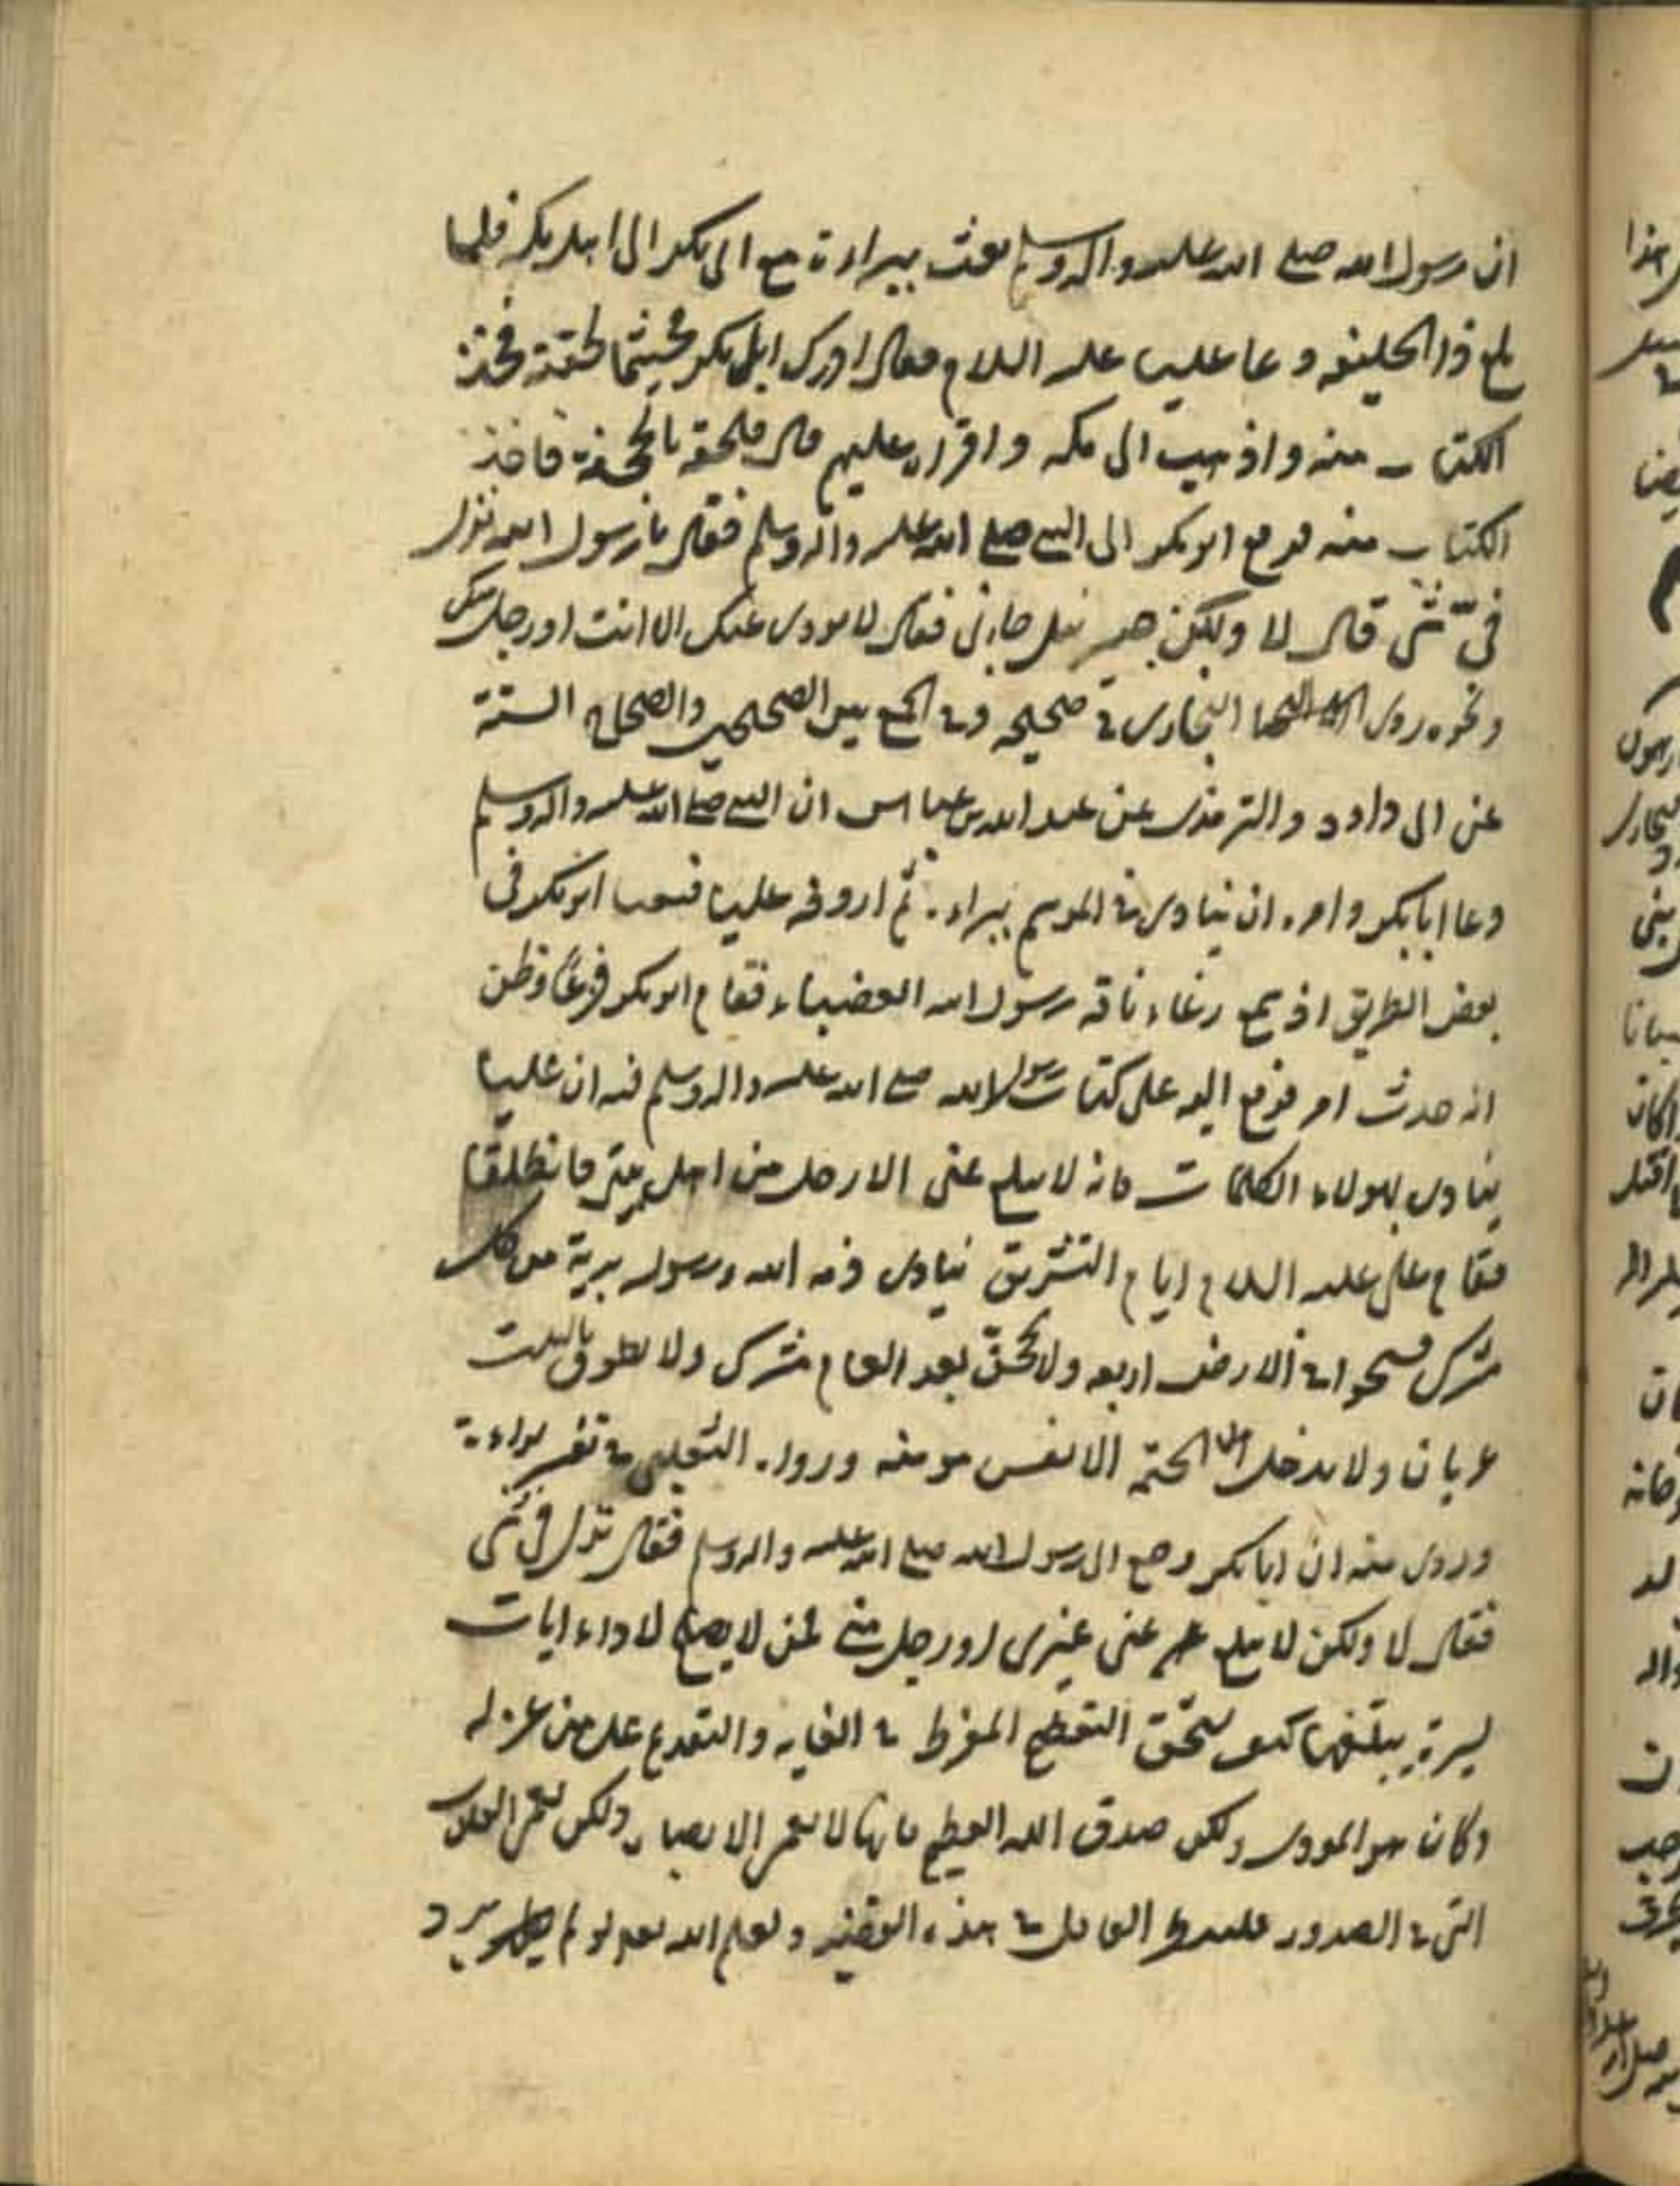 ان رسول الله صلى الله عليه واله وسلم بعث ببراءة مع ابى بكر الى اهل مكة فلما
بلغ ذا الحليفه دعا عليا عليه السلام فقال ادرك ابا بكر فحيثما لحقته فخذ
الكتاب منه واذهب الى مكه واقراه عليهم قال فلحقه بالجحفة فاخذ
الكتاب منه فرجع ابو بكر الى النبى صلى الله عليه واله وسلم فقال يا رسول الله نزل
فىّ شى قال لا ولكن جبرئيل جانى فقال لا يودى عنك الا انت او رجل منك
ونحوه روى البخارى فى صحيحه وفى الجمع بين الصحيحين والصحاح الستة
عن ابى داود والترمذى عن عبد الله بن عباس ان النبى صلى الله عليه واله وسلم
دعا ابا بكر وامره ان ينادى فى الموسم ببراءة ثم اردفه عليا فبينا ابو بكر فى
بعض الطريق اذ سمع رغاء ناقه رسول الله العضباء فقام ابو بكر فزعًا وظن
انه حدث امر فدفع اليه على كتاب رسول الله صلى الله عليه واله وسلم فيه ان عليا
ينادى بهولاء الكلمات فانه لا يبلغ عنى الا رجل من اهل بيتى فانطلقا
فقام على عليه السلام ايام التشريق ينادى ذمه الله ورسوله برية من كل
مشرك فسيحوا فى الارض اربعه ولا يحجّن بعد العام مشرك ولا يطوف بالبيت
عريان ولا يدخل الجنة الا نفس مومنه ورواه الثعلبى فى تفسير براءة
وروى فيه ان ابا بكر رجع الى رسول الله صلى الله عليه واله وسلم فقال نزل فىّ شى
فقال لا ولكن لا يبلغ عنى غيرى او رجل منى فمن لا يصلح لاداء ايات
يسيرة يبلّغها كيف يستحق التعظيم المفرط فى الغايه والتقدم على من عزله
وكان هو المودى ولكن صدق الله العظيم فانها لا تعمى الابصار ولكن تعمى القلوب
التى فى الصدور فلينظر العاقل فى هذه القضيه وليعلم الله لو لم يرد